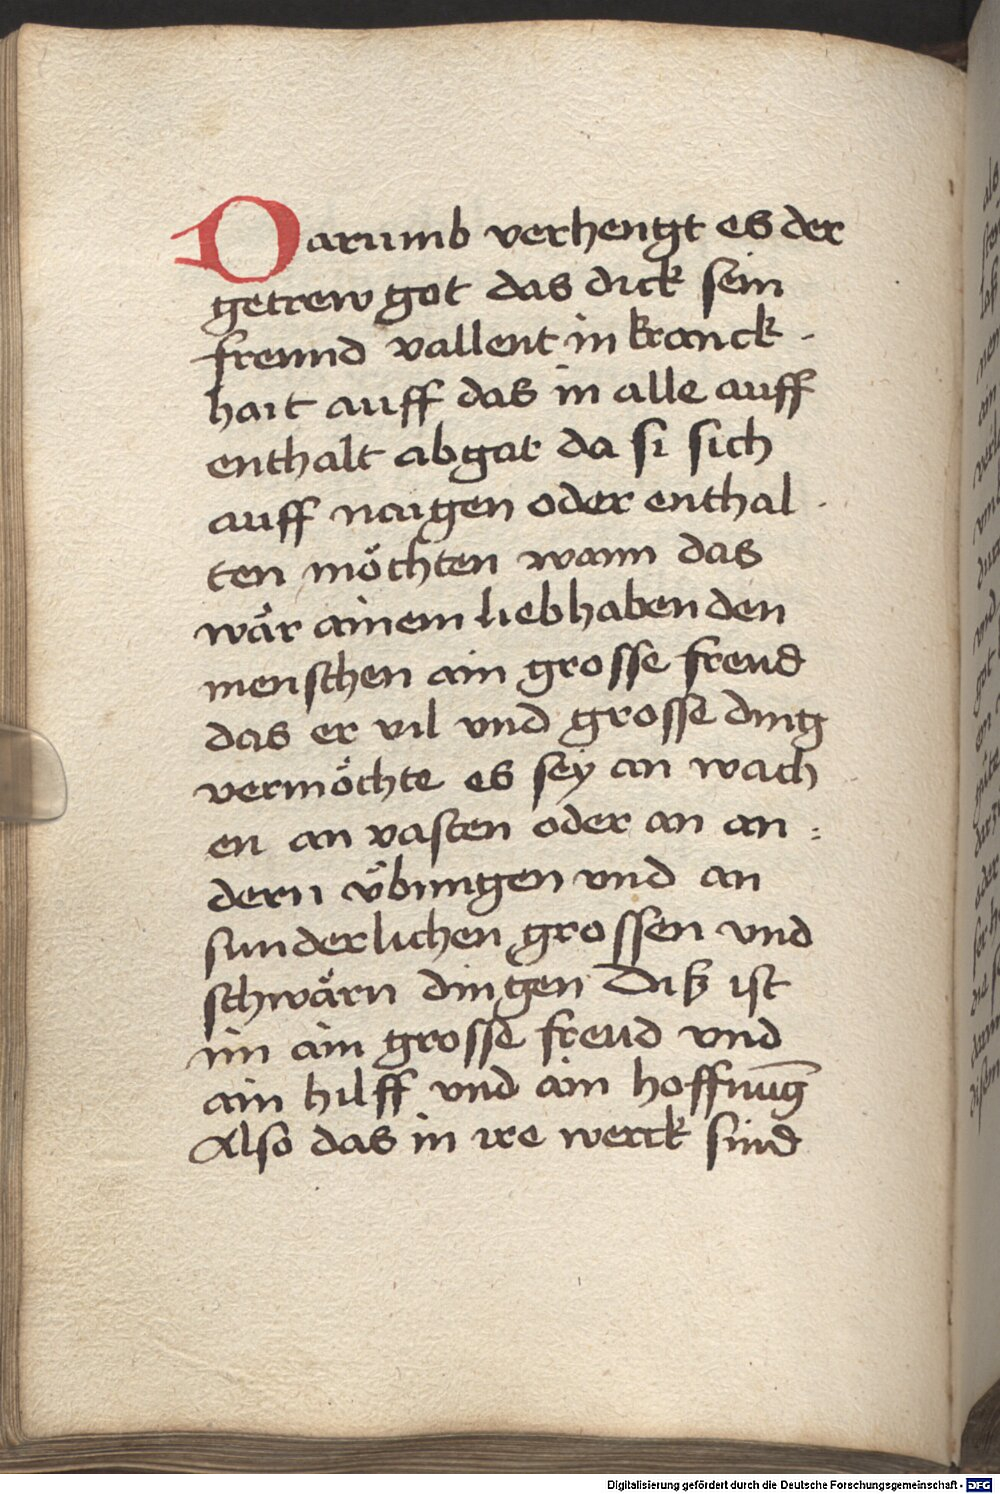 Darumb verhengt es der
getrew got das dick sein
freund vallent in kranck -
hait auff das in alle auff
enthalt abgat da si sich
auff naigen oder enthal -
ten möchten wann das
wär ainem liebhabenden
menschen ain grosse freud
das er vil vnd grosse ding
vermöchte es sey an wach
en an vasten oder an an :
dern v̈bungen vnd an
sunderlichen grossen vnd
schwärn dingen Diß ist
im ain grosse freud vnd
ain hilff vnd ain hoffnūg
Also das in ire werck sind
Digitalisierung gefördert durch die Deutsche Forschungsgemeinschaft - DFG